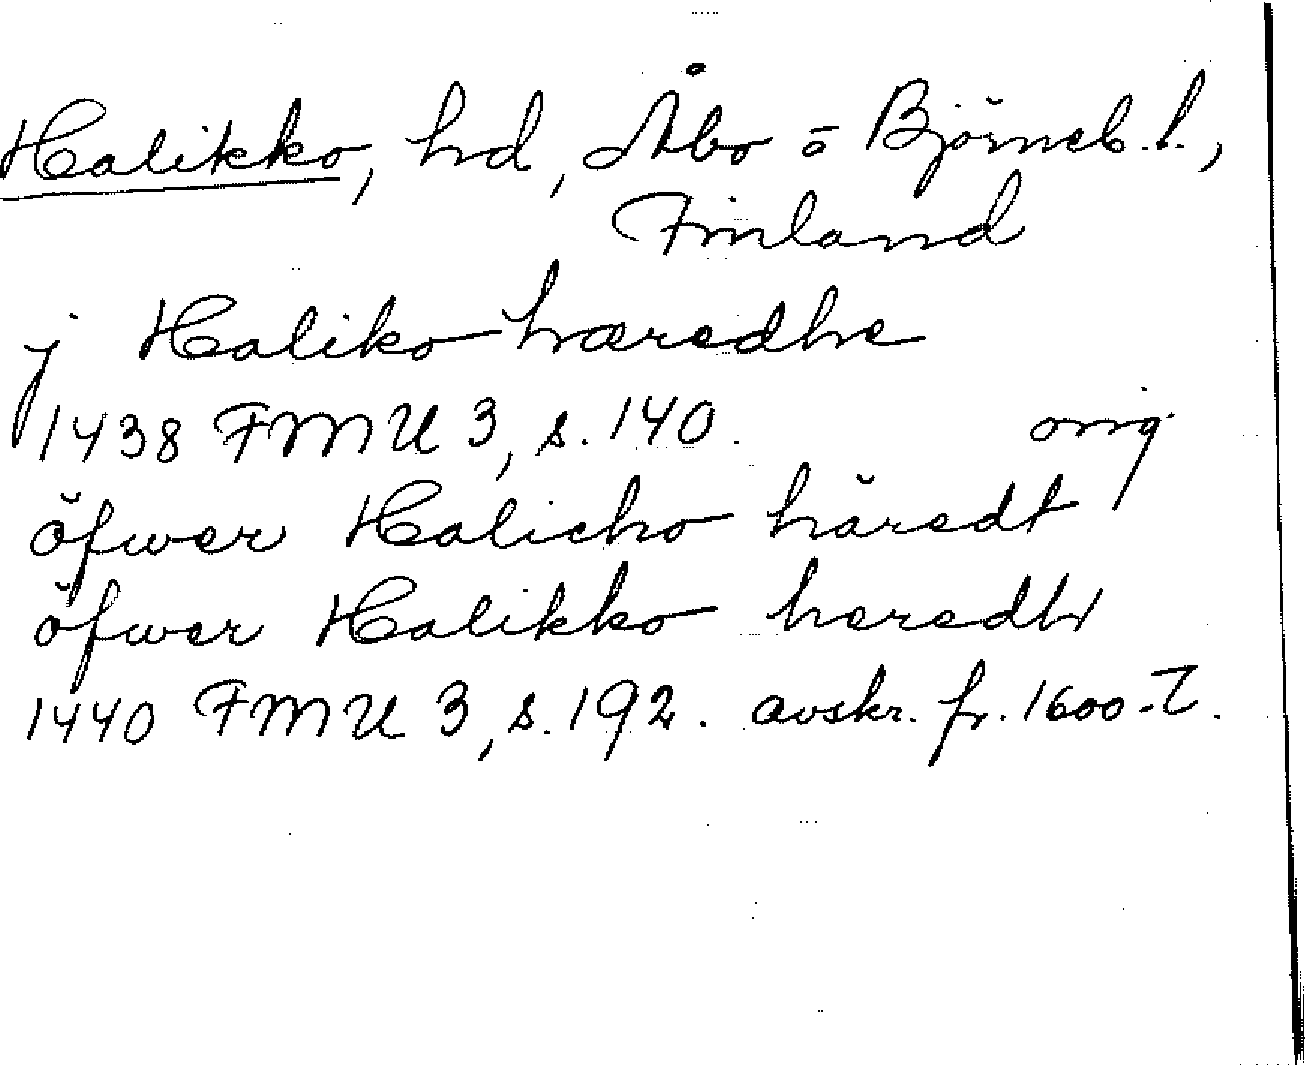 Halikko, hd, Åbo o Björneb. l.,
Finland
j Haliko hæredhe
1438 FMU 3, s. 140. orig.
öfwer Halicho häredt
öfwer Halikko heredh
1440 FMU 3, s. 192. avskr. fr. 1600-t.